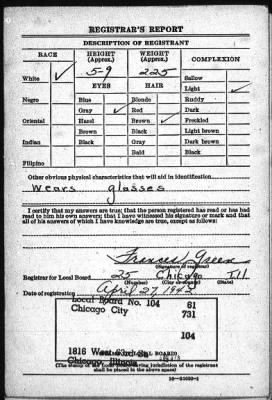 REGISTRAR'S REPORT
DESCRIPTION OF REGISTRANT
RACE HEIGHT (Approx.) WEIGHT (Approx.) COMPLEXION
White ✓ 5-9 225 Sallow
EYES HAIR Light ✓
Negro Blue Blonde Ruddy
Gray ✓ Red Dark
Oriental Hazel Brown ✓ Freckled
Brown Black Light brown
Indian Black Gray Dark brown
Bald Black
Filipino
Other obvious physical characteristics that will aid in identification
Wears glasses
I certify that my answers are true; that the person registered has read or has had
read to him his own answers; that I have witnessed his signature or mark and that
all of his answers of which I have knowledge are true, except as follows:
Frances Green
(Signature of registrar)
Registrar for Local Board 25 Chicago Ill
(Number) (City or county) (State)
Date of registration April 27 1942
Local Board No. 104 61
Chicago City 731
104
1816 West
Chicago, Illinois
(The stamp of the Local Board having jurisdiction of the registrant
shall be placed in the above space)